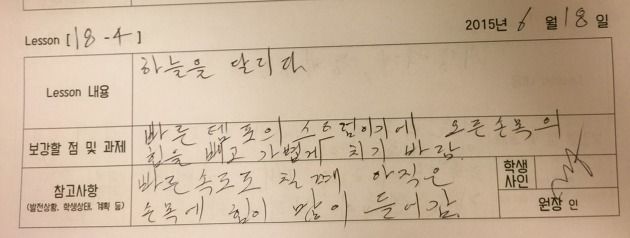 Lesson [18-4] 2015년 6월 18일
Lesson 내용
하늘을 달리다
보강할 점 및 과제
빠른 템포의 스트럼이기에 오른손목의
힘을 빼고 가볍게 치기 바람.
참고사항
(발전상황, 학생상태, 계획 등)
빠른속도로 칠때 아직은
손목에 힘이 많이 들어감.
학생
사인
원장 인